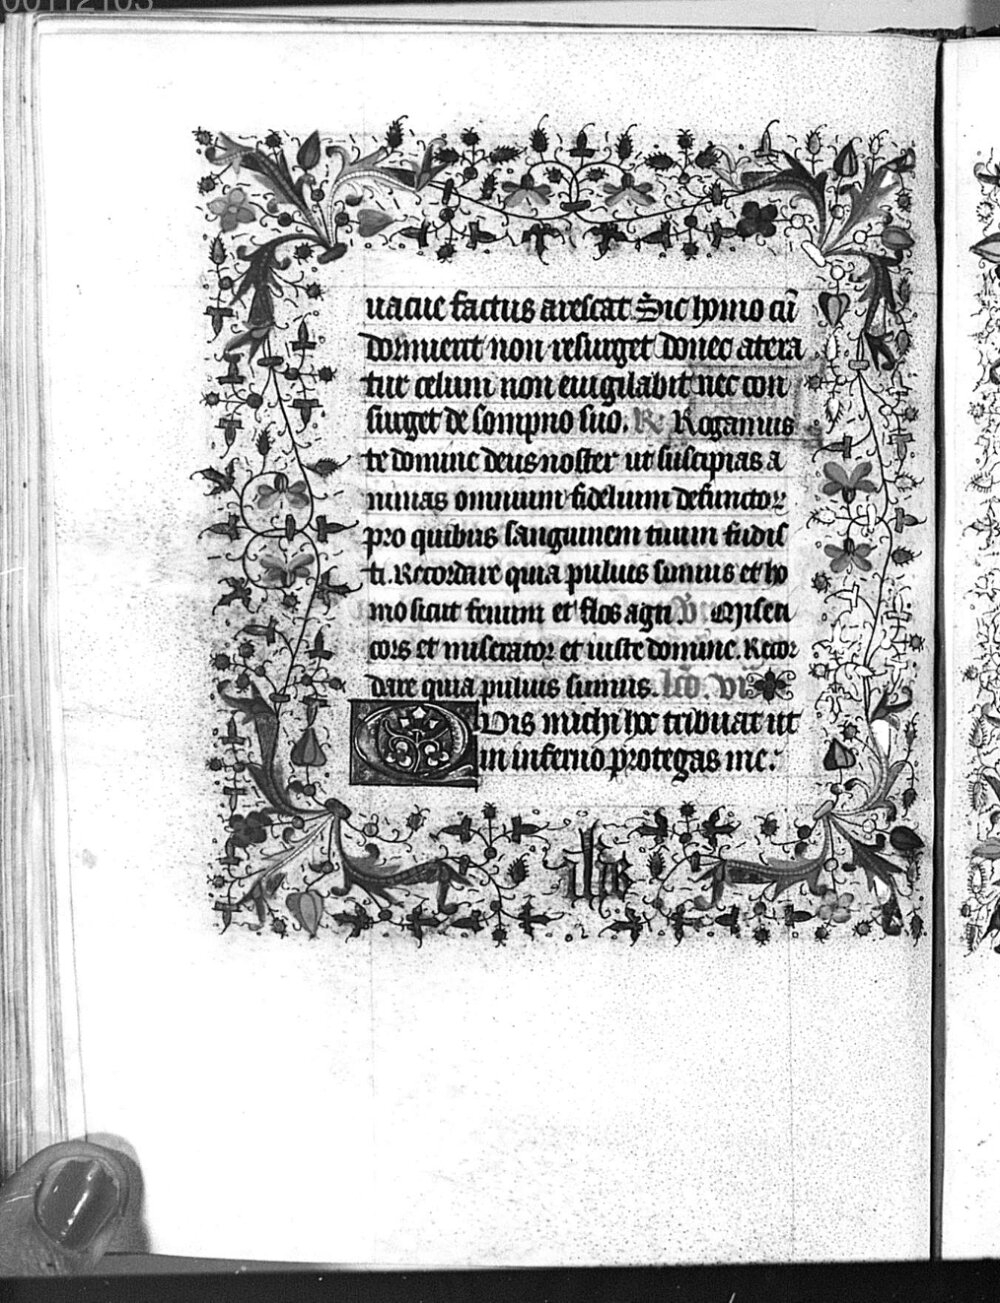 00112103
uacue factus arescat Sic homo cū
dormierit non resurget donec atera
tur celum non euigilabit nec con
surget de sompno suo. R Rogamus
te domine deus noster ut suscipias a
nimas omnium fidelium defunctoꝝ
pro quibus sanguinem tuum fudis
ti. Recordare quia puluis sumus et ho
mo sicut fenum et flos agri. V Miseri
cors et miserator et iuste domine. Recor
dare quia puluis sumus. lco. vi
Quis michi hoc tribuat ut
in inferno protegas me: